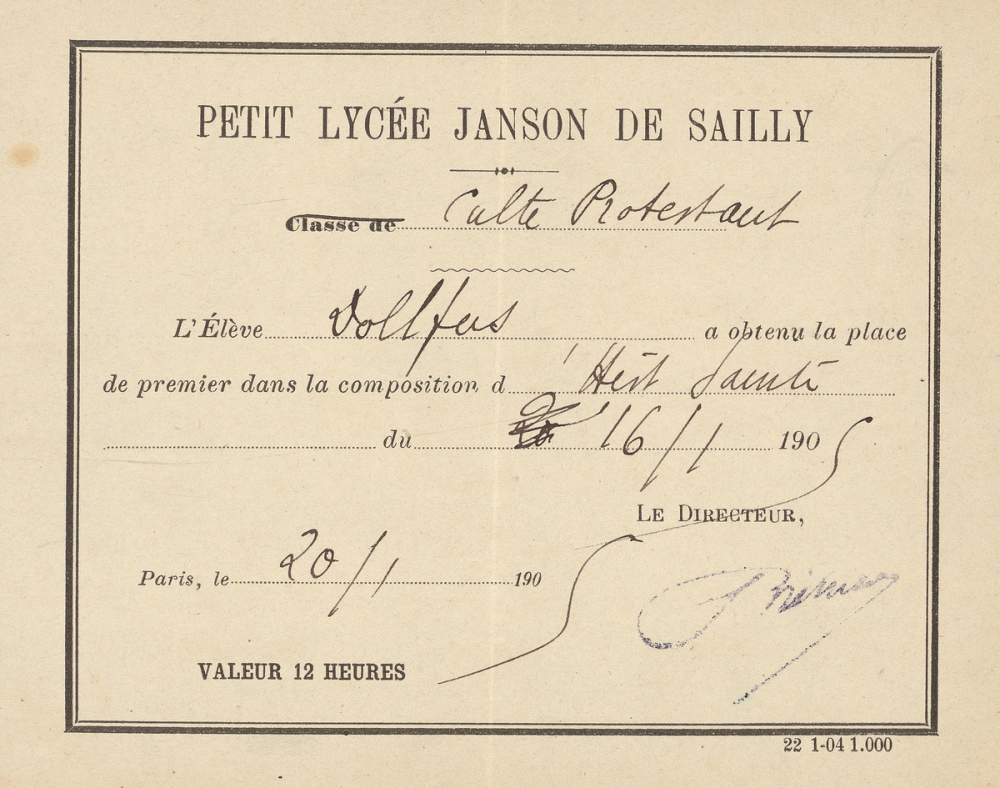 PETIT LYCÉE JANSON DE SAILLY
Classe de Culte Protestant
L'Élève Dollfus a obtenu la place
de premier dans la composition d'Hist Sainte
du 16/1 1905
LE DIRECTEUR,
Paris, le 20/1 1905
VALEUR 12 HEURES
22 1-04 1.000